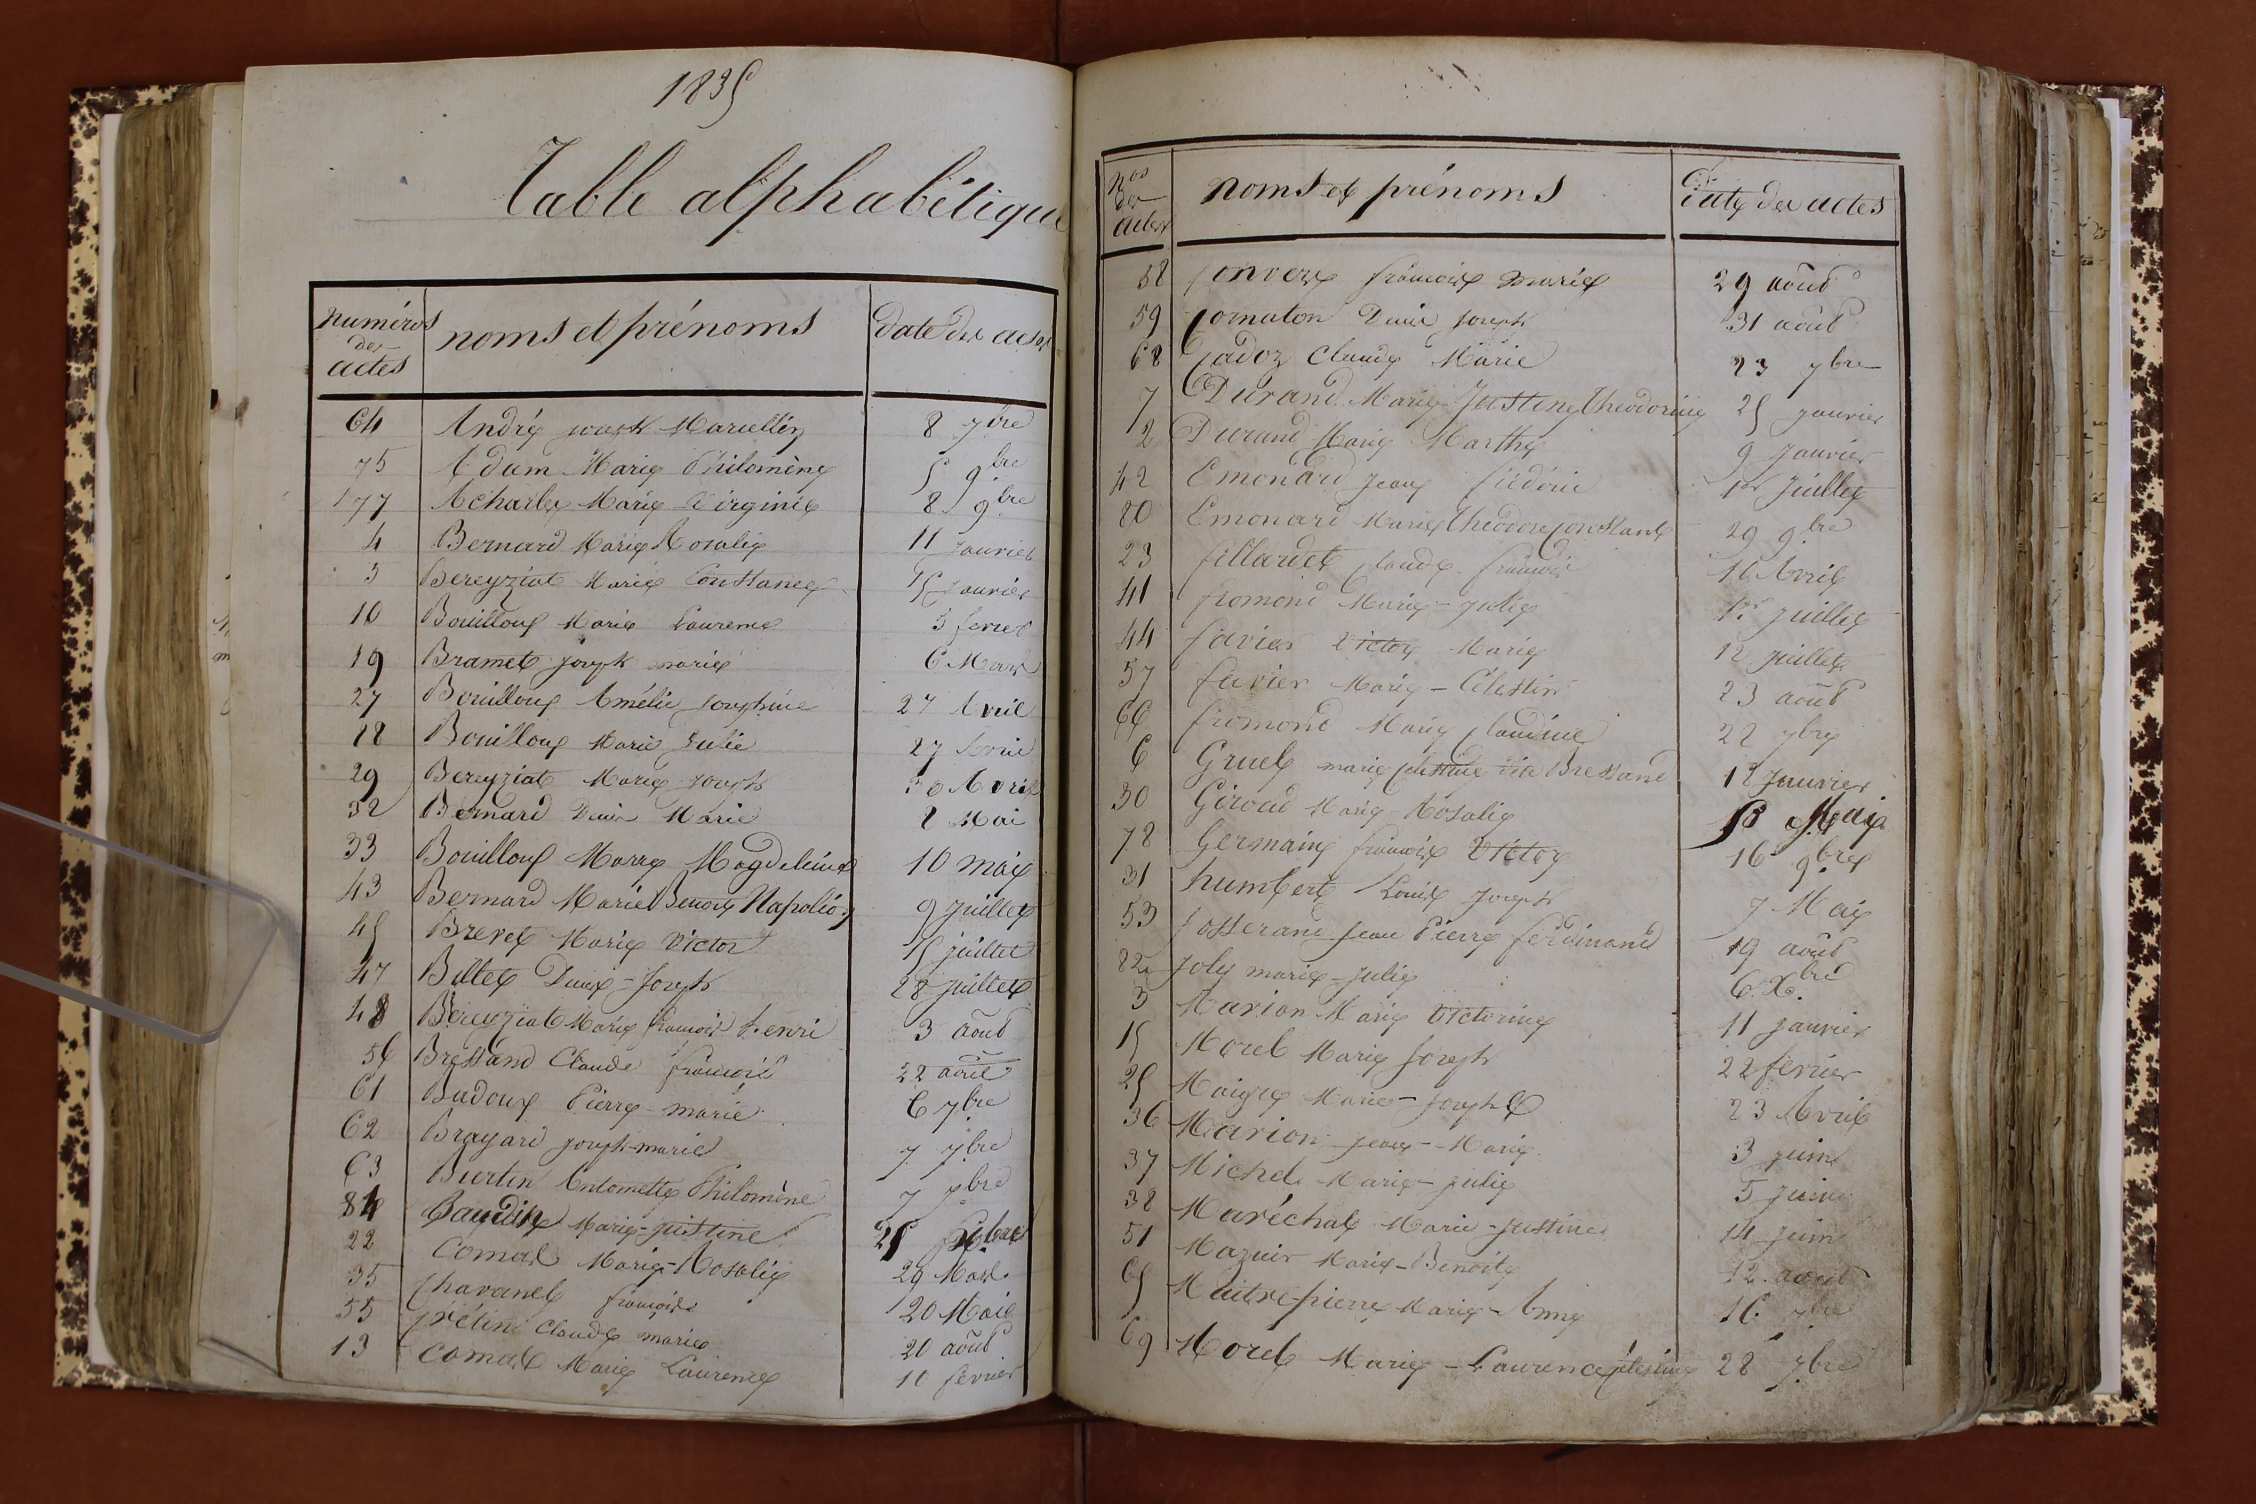 1835
Table alphabétique
numéros des actes noms et prénoms date des actes
64 André joseph Marcellin 8 7bre
75 Adam Marie Philomène 5 9bre
77 Acharles Marie Virginie 8 9bre
4 Bernard Marie Rosalie 11 janvier
5 Bereyziat Marie Constance 15 janvier
10 Bouilloux Marie Laurence 3 fevrer
19 Bramet joseph marie 6 Mars
27 Bouilloux Amélie josephine 27 Avril
28 Bouilloux Marie Julie 27 Avril
29 Bereyziat Marie joseph 30 Avril
32 Bernard Denis Marie 8 Mai
33 Bouilloux Marie Magdeleine 10 mai
43 Bernard Marie Benoit Napoléon 9 juillet
45 Brevet Marie Victor 15 juillet
47 Billet Denis - Joseph 28 juillet
48 Bereyziat Marie françois henri 3 août
56 Bressand Claude françois 22 août
61 Badoux Pierre - marie 6 7bre
62 Brayard joseph - marie 7 7bre
63 Burtin Antomette Philomène 7 7bre
84 Baudin Marie - justine 25
22 Comas Marie - Rosalie 29 Mars
35 Chavanel françois 20 Mai
55 Crétin Claude marie 20 août
13 Comas Marie Laurence 10 fevrier
nos des actes noms et prénoms date des actes
58 Convers françois marie 29 août
59 Comaton Denis joseph 31 août
68 Cadoz Claude Marie 23 7bre
7 Durand Marie Justine Théodorine 25 janvier
2 Durand Marie Marthe 9 Janvier
42 Emonard Jean frédéric 1er juillet
80 Emonard Marie Théodore Constant 29 9bre
23 fillardet Claude françois 16 Avril
41 fromond Marie - julie 1er juillet
44 favier Victor Marie 12 juillet
57 favier Marie - Célestin 23 août
66 fromond Marie Claudine 22 7bre
6 Gruel marie Célestine dite Bressand 18 Janvier
30 Giroud Marie Rosalie Mai
78 Germain françois Victor 16 9bre
31 humbert Louis joseph 7 Mai
53 Josserand Jean Pierre ferdinand 19 août
82 Joly marie - julie 6 Xbre
3 Marion Marie Victorine 11 janvier
15 Morel Marie Joseph 22 fevrier
25 Maigre Marie - joseph 23 Avril
36 Marion Jean - Marie 3 juin
37 Michel Marie - julie 5 juin
38 Maréchal Marie - justine 14 juin
51 Mazuir Marie - Benoite 12 août
65 Maitrepierre Marie - Anne 16 7bre
69 Morel Marie - Laurence Célestine 28 7bre